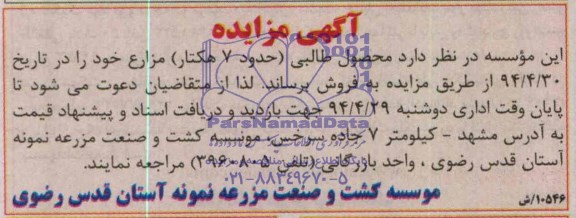 آگهی مزایده
این مؤسسه در نظر دارد محصول طالبی (حدود ۷ هکتار) مزارع خود را در تاریخ
۹۴/۴/۳۰ از طریق مزایده به فروش برساند. لذا از متقاضیان دعوت می شود تا
پایان وقت اداری دوشنبه ۹۴/۴/۲۹ جهت بازدید و دریافت اسناد و پیشنهاد قیمت
به آدرس مشهد - کیلومتر ۷ جاده سرخس، موسسه کشت و صنعت مزرعه نمونه
آستان قدس رضوی ، واحد بازرگانی (تلفن ۳۹۶۰۴۰۰۵) مراجعه نمایند.
موسسه کشت و صنعت مزرعه نمونه آستان قدس رضوی
۱۰۵۴۶/ش
ParsNamadData
۰۲۱-۸۸۳۴۹۶۷۰-۵